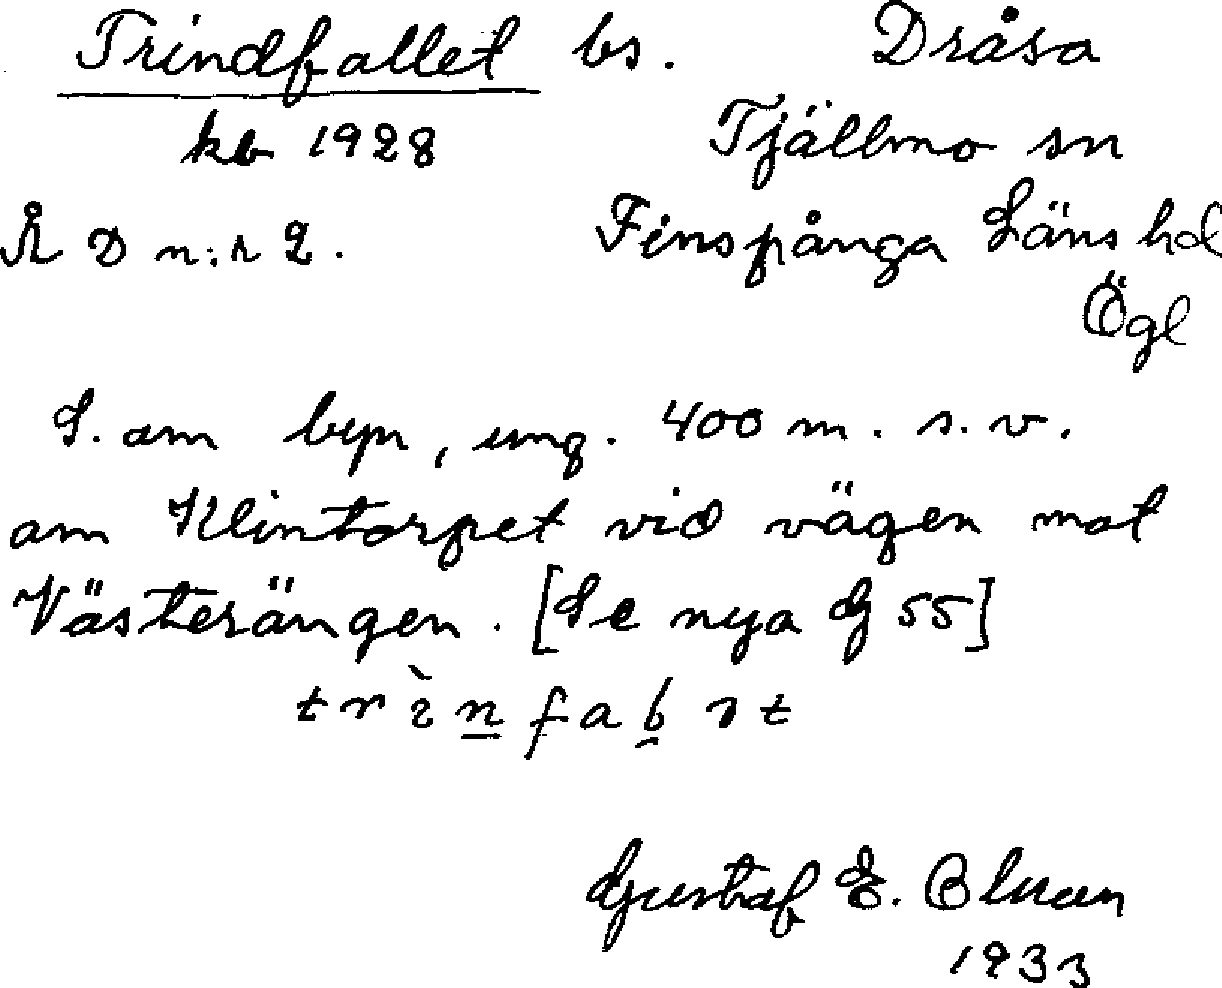 Trindfallet bs. Dråsa
kb 1928 Tjällmo sn
ÄR D n:r 2. Finspånga Läns hd
Ögl
S. om byn, ung. 400 m. s.v.
om Klintorpet vid vägen mot
Västerängen. [Se nya Gg 55]
Gustaf E.
1933